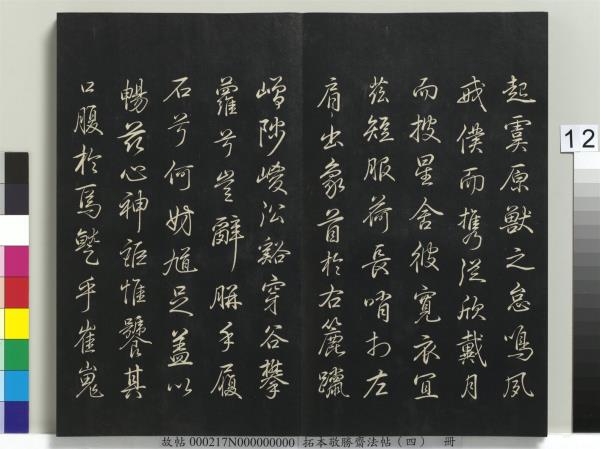 起虞原獸之怠鳴夙
戒僕而攜從欣戴月
而披星舍彼寬衣宜
茲短服荷長哨於左
肩出象首於右簏躐
嶒陟峻沿谿穿谷攀
蘿兮豈辭胼手履
石兮何妨足蓋以
暢茲心神詎惟饕其
口腹於焉乎崔嵬
12
故帖 000217N000000000 拓本敬勝齋法帖（四） 冊